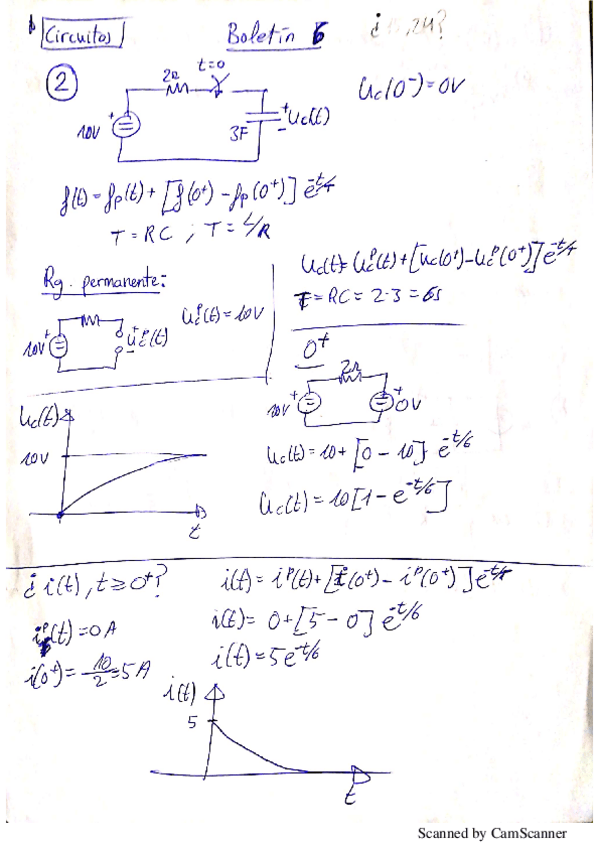 Circuitos
Boletín 6
②
2Ω
t=0
10V
3F
+
-
Uc(t)
Uc(0⁻)=0V
f(t)=fp(t)+[f(0⁺)-fp(0⁺)] e^-t/τ
T=RC ; T=L/R
Rg. permanente:
10V
+
Ucᵖ(t)
-
Ucᵖ(t)=10V
Uc(t)=Ucᵖ(t)+[uc(0⁺)-Ucᵖ(0⁺)]e^-t/τ
T=RC=2·3=6s
0⁺
2Ω
10V
+
+
0V
Uc(t)
10V
t
Uc(t)=10+[0-10] e^-t/6
Uc(t)=10[1-e^-t/6]
¿i(t), t≥0⁺?
i(t)=iᵖ(t)+[i(0⁺)-iᵖ(0⁺)]e^-t/τ
iᵖ(t)=0A
i(t)=0+[5-0] e^-t/6
i(0⁺)=10/2=5A
i(t)=5e^-t/6
i(t)
5
t
Scanned by CamScanner